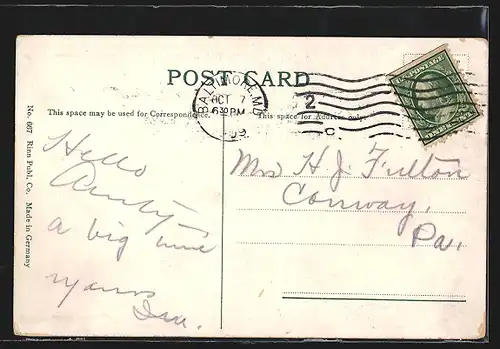 POST CARD
BALTIMORE, MD.
OCT 7
630 PM
09
2
C.
U.S. POSTAGE
ONE CENT
This space may be used for Correspondence.
This space for Address only.
No. 667 Rinn Publ. Co. Made in Germany
Hello
a big time
yours
Mrs H. J. Fulton
Conway,
Pa.